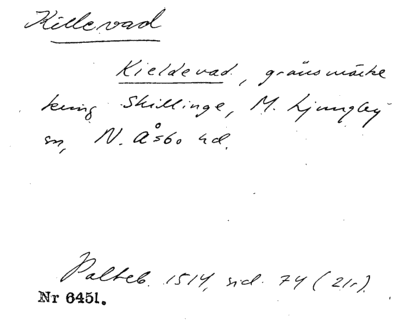 Killevad
Kieldevad, gränsmärke
kring Skillinge, M. Ljungby
sn, N. Åsbo hd.
Palteb. 1514, sid. 74 (21r).
Nr 6451.